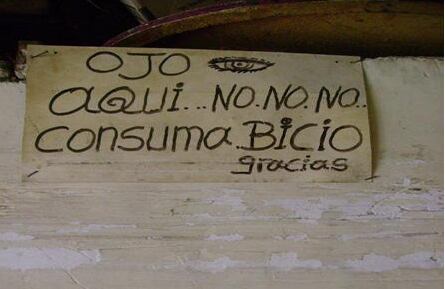 OJO
AQUI... NO. NO. NO..
consuma. BICIO
gracias